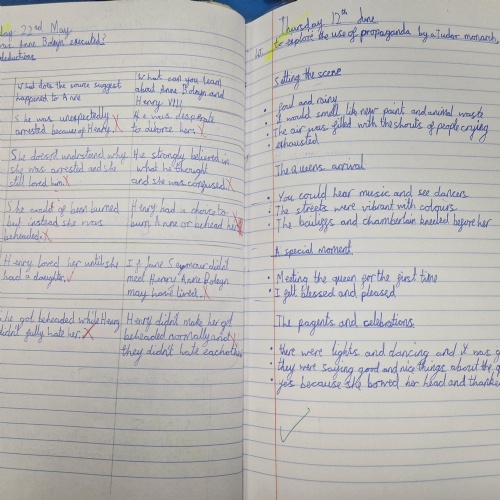 22nd May
Anne Boleyn executed?
deductions
What does the source suggest
happened to Anne
What can you learn
about Anne Boleyn and
Henry VIII
She was unexpectedly
arrested because of Henry.
He was desperate
to divorce her.
She doesn't understand why
she was arrested and she
still loved him.
He strongly believed in
what he thought
and she was confused.
She could of been burned
but instead she was
beheaded.
Henry had a choice to
burn Anne or behead her
Henry loved her until she
had a daughter.
If Jane Seymour didn't
meet Henry Anne Boleyn
may have lived.
She got beheaded while Henry
didn't fully hate her.
Henry didn't make her get
beheaded normally and
they didn't hate eachother
Thursday 12th June
to explore the use of propaganda by a Tudor monarch.
Setting the scene
• foul and rainy
• It would smell like new paint and animal waste
• The air was filled with the shouts of people crying
• exhausted
The Queens arrival
• You could hear music and see dancers
• The streets were vibrant with colours
• The bailiffs and chamberlain kneeled before her
A special moment
• Meeting the queen for the first time
• I felt blessed and pleased
The pagents and celebrations
• there were lights and dancing and it was
• they were saying good and nice things about the
• yes because she bowed her head and thanked